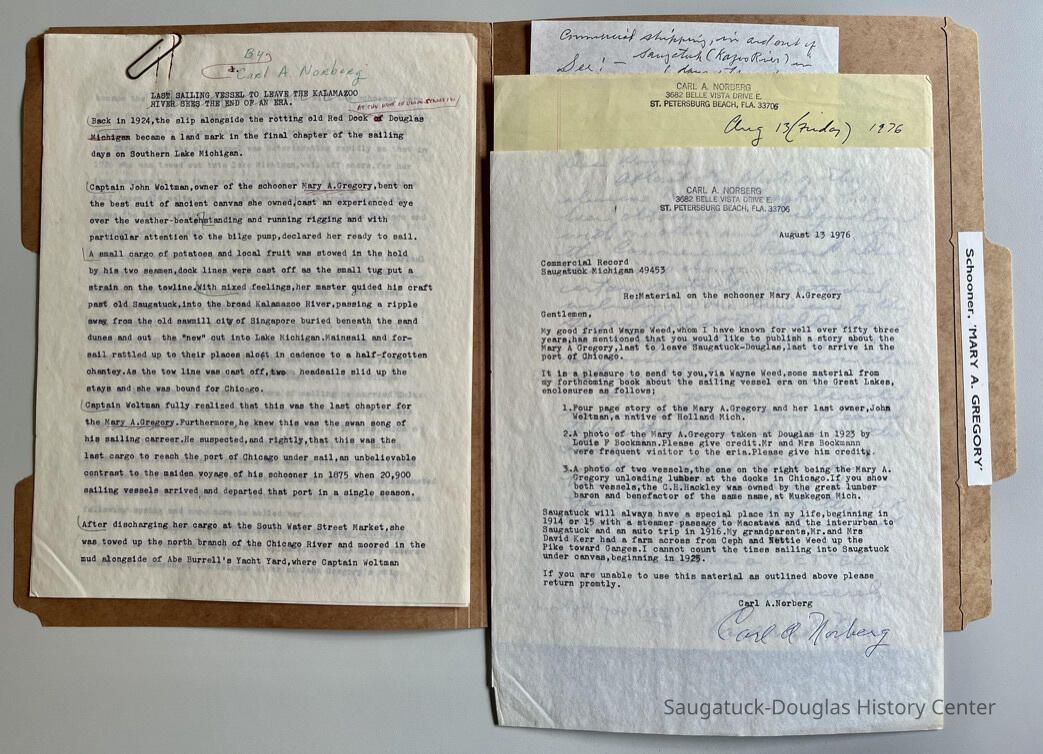 By
Carl A. Norberg
LAST SAILING VESSEL TO LEAVE THE KALAMAZOO
RIVER SEES THE END OF AN ERA.
Back in 1924,the slip alongside the rotting old Red Dock of Douglas
Michigan became a land mark in the final chapter of the sailing
days on Southern Lake Michigan.
Captain John Woltman,owner of the schooner Mary A.Gregory,bent on
the best suit of ancient canvas she owned,cast an experienced eye
over the weather-beaten standing and running rigging and with
particular attention to the bilge pump,declared her ready to sail.
A small cargo of potatoes and local fruit was stowed in the hold
by his two seamen,dock lines were cast off as the small tug put a
strain on the towline.With mixed feelings,her master guided his craft
past old Saugatuck,into the broad Kalamazoo River,passing a ripple
away from the old sawmill city of Singapore buried beneath the sand
dunes and out the "new" cut into Lake Michigan.Mainsail and for-
sail rattled up to their places aloft in cadence to a half-forgotten
chantey.As the tow line was cast off,two headsails slid up the
stays and she was bound for Chicago.
Captain Woltman fully realized that this was the last chapter for
the Mary A.Gregory.Furthermore,he knew this was the swan song of
his sailing carreer.He suspected,and rightly,that this was the
last cargo to reach the port of Chicago under sail,an unbelievable
contrast to the maiden voyage of his schooner in 1875 when 20,900
sailing vessels arrived and departed that port in a single season.
After discharging her cargo at the South Water Street Market,she
was towed up the north branch of the Chicago River and moored in the
mud alongside of Abe Burrell's Yacht Yard,where Captain Woltman
Commercial shipping, in and out of
See! — Saugatuck (Kazoo River) in
CARL A. NORBERG
3682 BELLE VISTA DRIVE E.
ST. PETERSBURG BEACH, FLA. 33706
Aug 13 (Friday) 1976
CARL A. NORBERG
3682 BELLE VISTA DRIVE E.
ST. PETERSBURG BEACH, FLA. 33706
August 13 1976
Commercial Record
Saugatuck Michigan 49453
Re:Material on the schooner Mary A.Gregory
Gentlemen,
My good friend Wayne Weed,whom I have known for well over fifty three
years,has mentioned that you would like to publish a story about the
Mary A Gregory,last to leave Saugatuck-Douglas,last to arrive in the
port of Chicago.
It is a pleasure to send to you,via Wayne Weed,some material from
my forthcoming book about the sailing vessel era on the Great Lakes,
enclosures as follows;
1.Four page story of the Mary A.Gregory and her last owner,John
Woltman,a native of Holland Mich.
2.A photo of the Mary A.Gregory taken at Douglas in 1923 by
Louis F Bockmann.Please give credit.Mr and Mrs Bockmann
were frequent visitor to the eria.Please give him credit.
3.A photo of two vessels,the one on the right being the Mary A.
Gregory unloading lumber at the docks in Chicago.If you show
both vessels,the C.H.Hackley was owned by the great lumber
baron and benefactor of the same name,at Muskegon Mich.
Saugatuck will always have a special place in my life,beginning in
1914 or 15 with a steamer passage to Macatawa and the interurban to
Saugatuck and an auto trip in 1916.My grandparents,Mr.and Mrs
David Kerr had a farm across from Ceph and Nettie Weed up the
Pike toward Ganges.I cannot count the times sailing into Saugatuck
under canvas,beginning in 1925.
If you are unable to use this material as outlined above please
return promtly.
Carl A.Norberg
Carl A Norberg
Schooner, 'MARY A. GREGORY'
Saugatuck-Douglas History Center